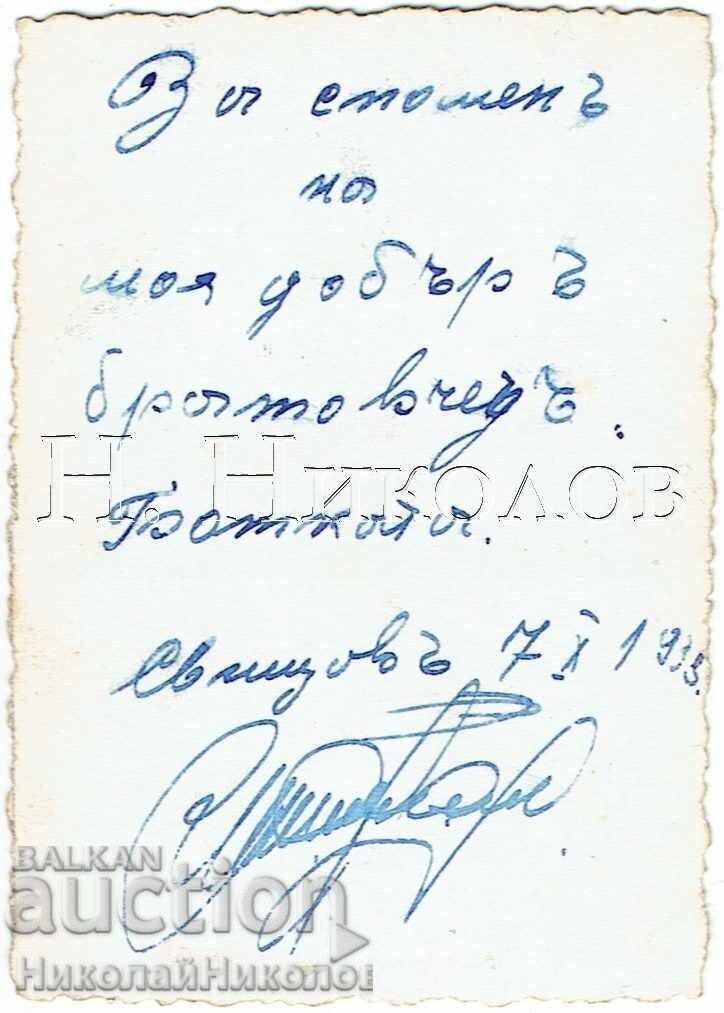 За споменъ
на
моя добъръ
братовчедъ.
Н. Николов
Свищовъ 7 X 1933.
BALKAN
auction
НиколайНиколов